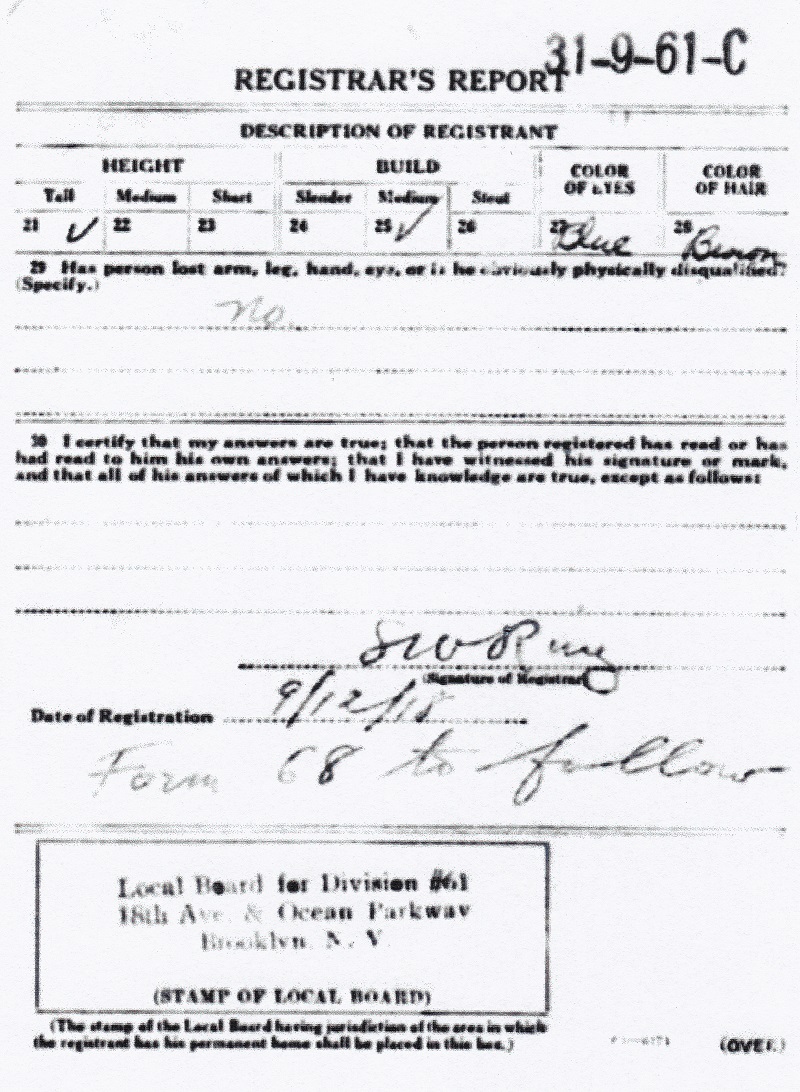 31-9-61-C
REGISTRAR'S REPORT
DESCRIPTION OF REGISTRANT
HEIGHT BUILD COLOR OF EYES COLOR OF HAIR
Tall Medium Short Slender Medium Stout
21 ✓ 22 23 24 25 ✓ 26 27 Blue 28 Brown
29 Has person lost arm, leg, hand, eye, or is he obviously physically disqualified?
(Specify.)
No.
30 I certify that my answers are true; that the person registered has read or has
had read to him his own answers; that I have witnessed his signature or mark,
and that all of his answers of which I have knowledge are true, except as follows:
(Signature of Registrar)
Date of Registration 9/12/18
Form 68 to follow
Local Board for Division #61
18th Ave. & Ocean Parkway
Brooklyn, N. Y.
(STAMP OF LOCAL BOARD)
(The stamp of the Local Board having jurisdiction of the area in which
the registrant has his permanent home shall be placed in this box.)
(OVER)